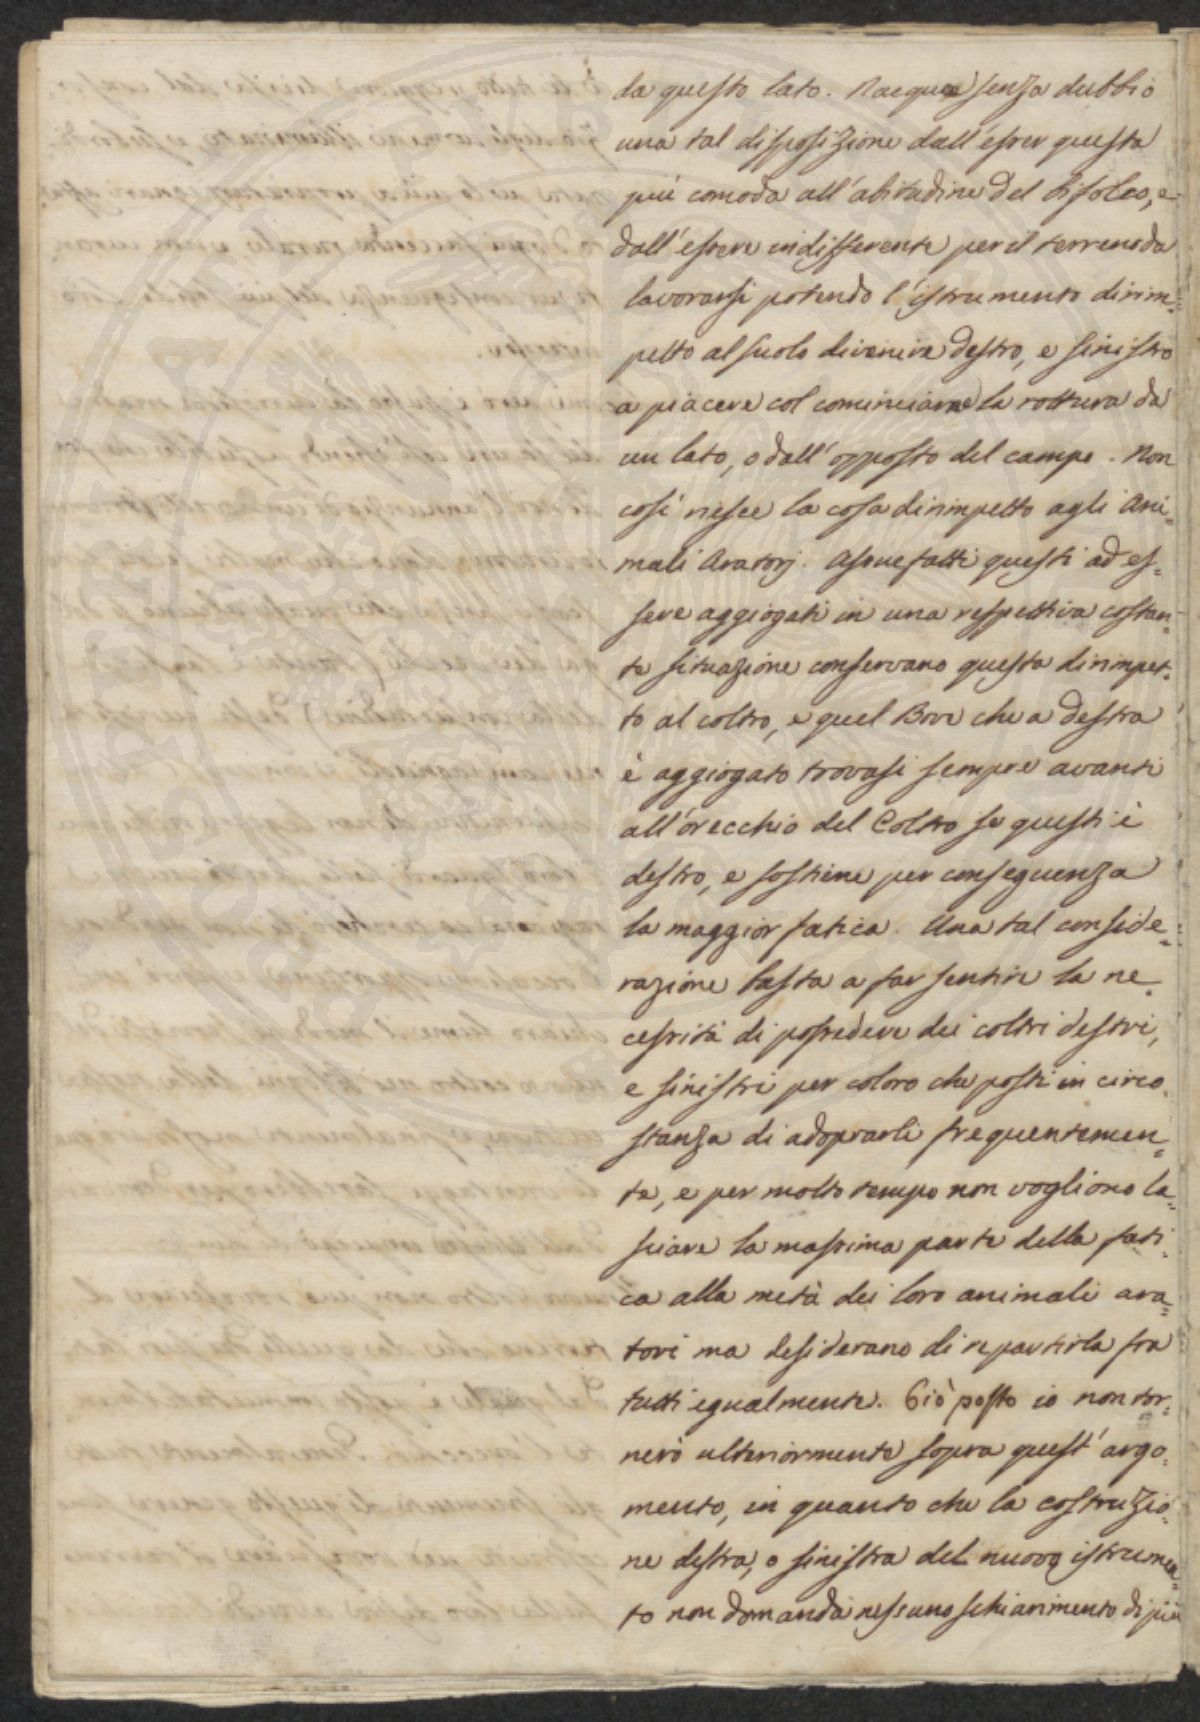 da questo lato. Nacque senza dubbio
una tal disposizione dall'esser questa
più comoda all'abitudine del Bifolco, e
dall'essere indifferente per il terreno da
lavorarsi potendo l'istrumento dirim=
petto al suolo divenire destro, e sinistro
a piacere col cominciare la rottura da
un lato, o dall'opposto del campo. Non
così riesce la cosa dirimpetto agli Ani=
mali Aratorj. Assuefatti questi ad es=
sere aggiogati in una respettiva costan=
te situazione conservano questa dirimpet=
to al coltro, e quel Bove che a destra
è aggiogato trovasi sempre avanti
all'orecchio del Coltro se questi è
destro, e sostiene per conseguenza
la maggior fatica. Una tal conside=
razione basta a far sentire la ne=
cessità di possedere dei coltri destri,
e sinistri per coloro che posti in circo=
stanza di adoprarli frequentemen=
te, e per molto tempo non vogliono la=
sciare la massima parte della fati=
ca alla metà dei loro animali ara=
tori ma desiderano di repartirla fra
tutti egualmente. Ciò posto io non tor=
nerò ulteriormente sopra quest'argo=
mento, in quanto che la costruzio=
ne destra, o sinistra del nuovo istrumen=
to non domanda nessuno schiarimento di più